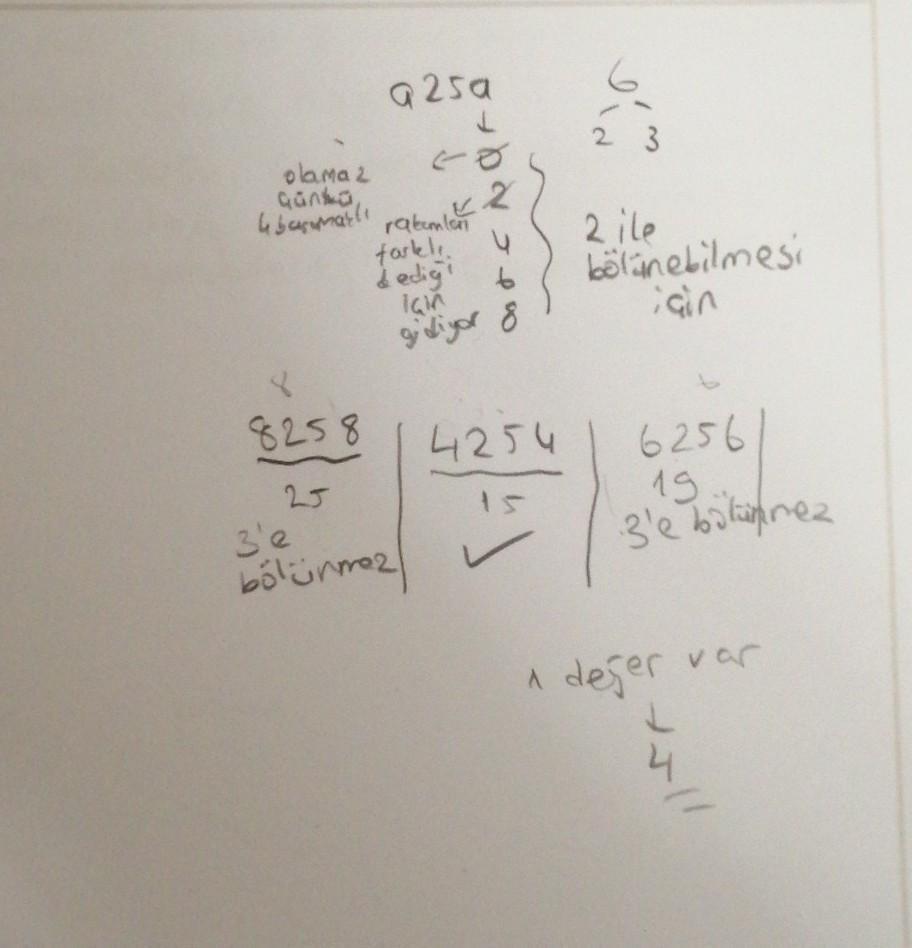 a25a
6
↓
2 3
← 0
olamaz
çünkü
4 basamaklı
2
rakamları
farklı
dediği
için
gidiyor
4
6
8
2 ile
bölünebilmesi
için
8
6
8258
25
3'e
bölünmez
4254
15
✓
6256
19
3'e bölünmez
1 değer var
↓
4